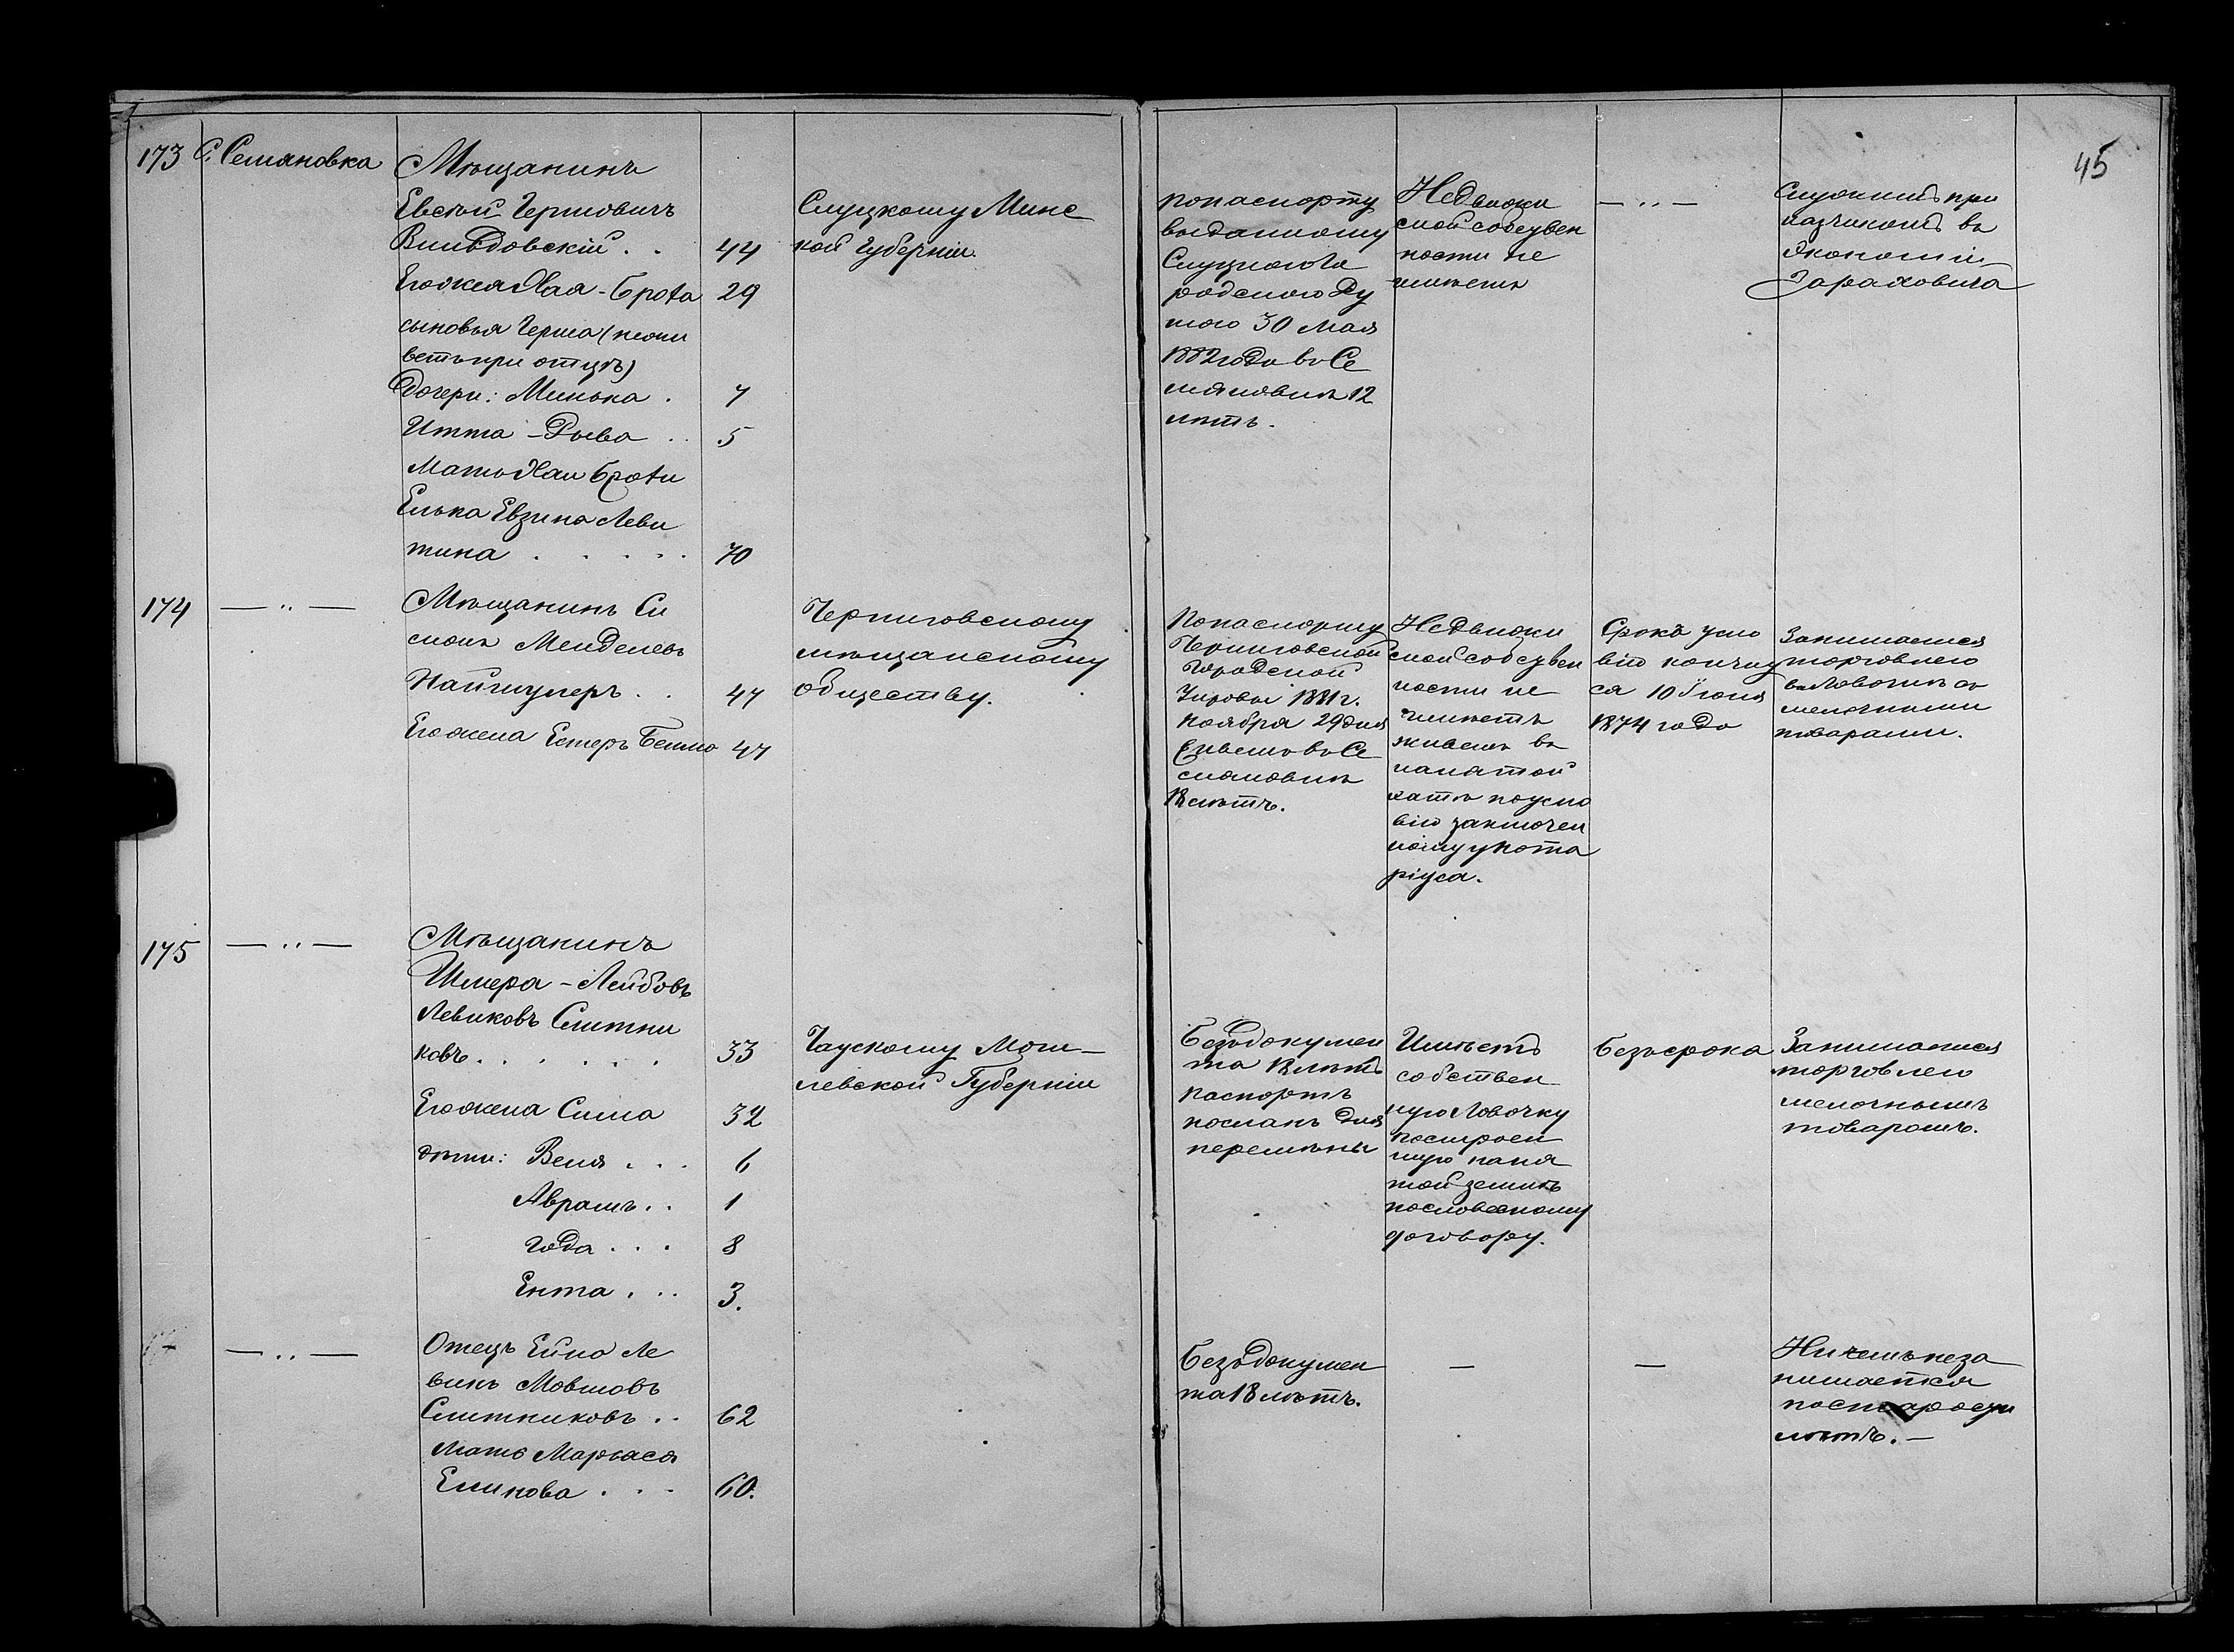 45
173 С. Семяновка
Мѣщанинъ
Евсѣй Гершовичъ
Вильдовскій . . 44
Его жена Хая-Брота 29
сыновья Герша (нежи
ветъ при отцѣ)
дочери: Минька . 7
Итта-Рыва . . 5
Мать Хаи Броти
Елька Евзина Леви
тина . . . . . 70
Слуцкому Минс
кой Губерніи.
по паспорту
выданному
Слуцкого Го
родского Ду
мою 30 Мая
1882 года въ Се
мяновкѣ 12
лѣтъ.
Недвижи
мой собствен
ности не
имѣетъ
— „ —
Служитъ при
казчикомъ въ
экономіи
174 — „ —
Мѣщанинъ Си
монъ Менделевъ
Наймулеръ . . 47
Его жена Естеръ Бейла 47
Черниговскому
мѣщанскому
обществу.
По паспорту
Черниговской
Городской
Управы 1881 г.
Ноября 29 дня
Живетъ въ Се
мяновкѣ
18 лѣтъ.
Недвижи
мой собствен
ности не
имѣетъ
живетъ въ
нанятой
хатѣ по усло
вію заключен
ному у нота
ріуса.
Срокъ усло
вію кончил
ся 10 Іюня
1874 года
Занимается
торговлею
въ Лавочкѣ
мелочными
товарами.
175 — „ —
Мѣщанинъ
Шмера-Лейбовъ
Левиковъ Слитни
ковъ . . . . . . 33
Его жена Сима 32
дѣти: Веля . . . 6
Аврамъ . . 1
Года . . . 8
Ента . . . 3.
Чаускому Моги-
левской Губерніи
Безъ докумен
та 18 лѣтъ
паспортъ
посланъ для
перемѣны
Имѣетъ
собствен
ную Лавочку
построен
ную наня
той землѣ
по словесному
договору.
Безъ срока
Занимается
торговлею
мелочнымъ
товаромъ.
— „ —
Отецъ Ейно Ле
викъ Мовшовъ
Слитниковъ . . 62
Мать Марьася
Еликова . . . 60.
Безъ докумен
та 18 лѣтъ.
— —
Ничемъ неза
нимается
по старости
лѣтъ. —